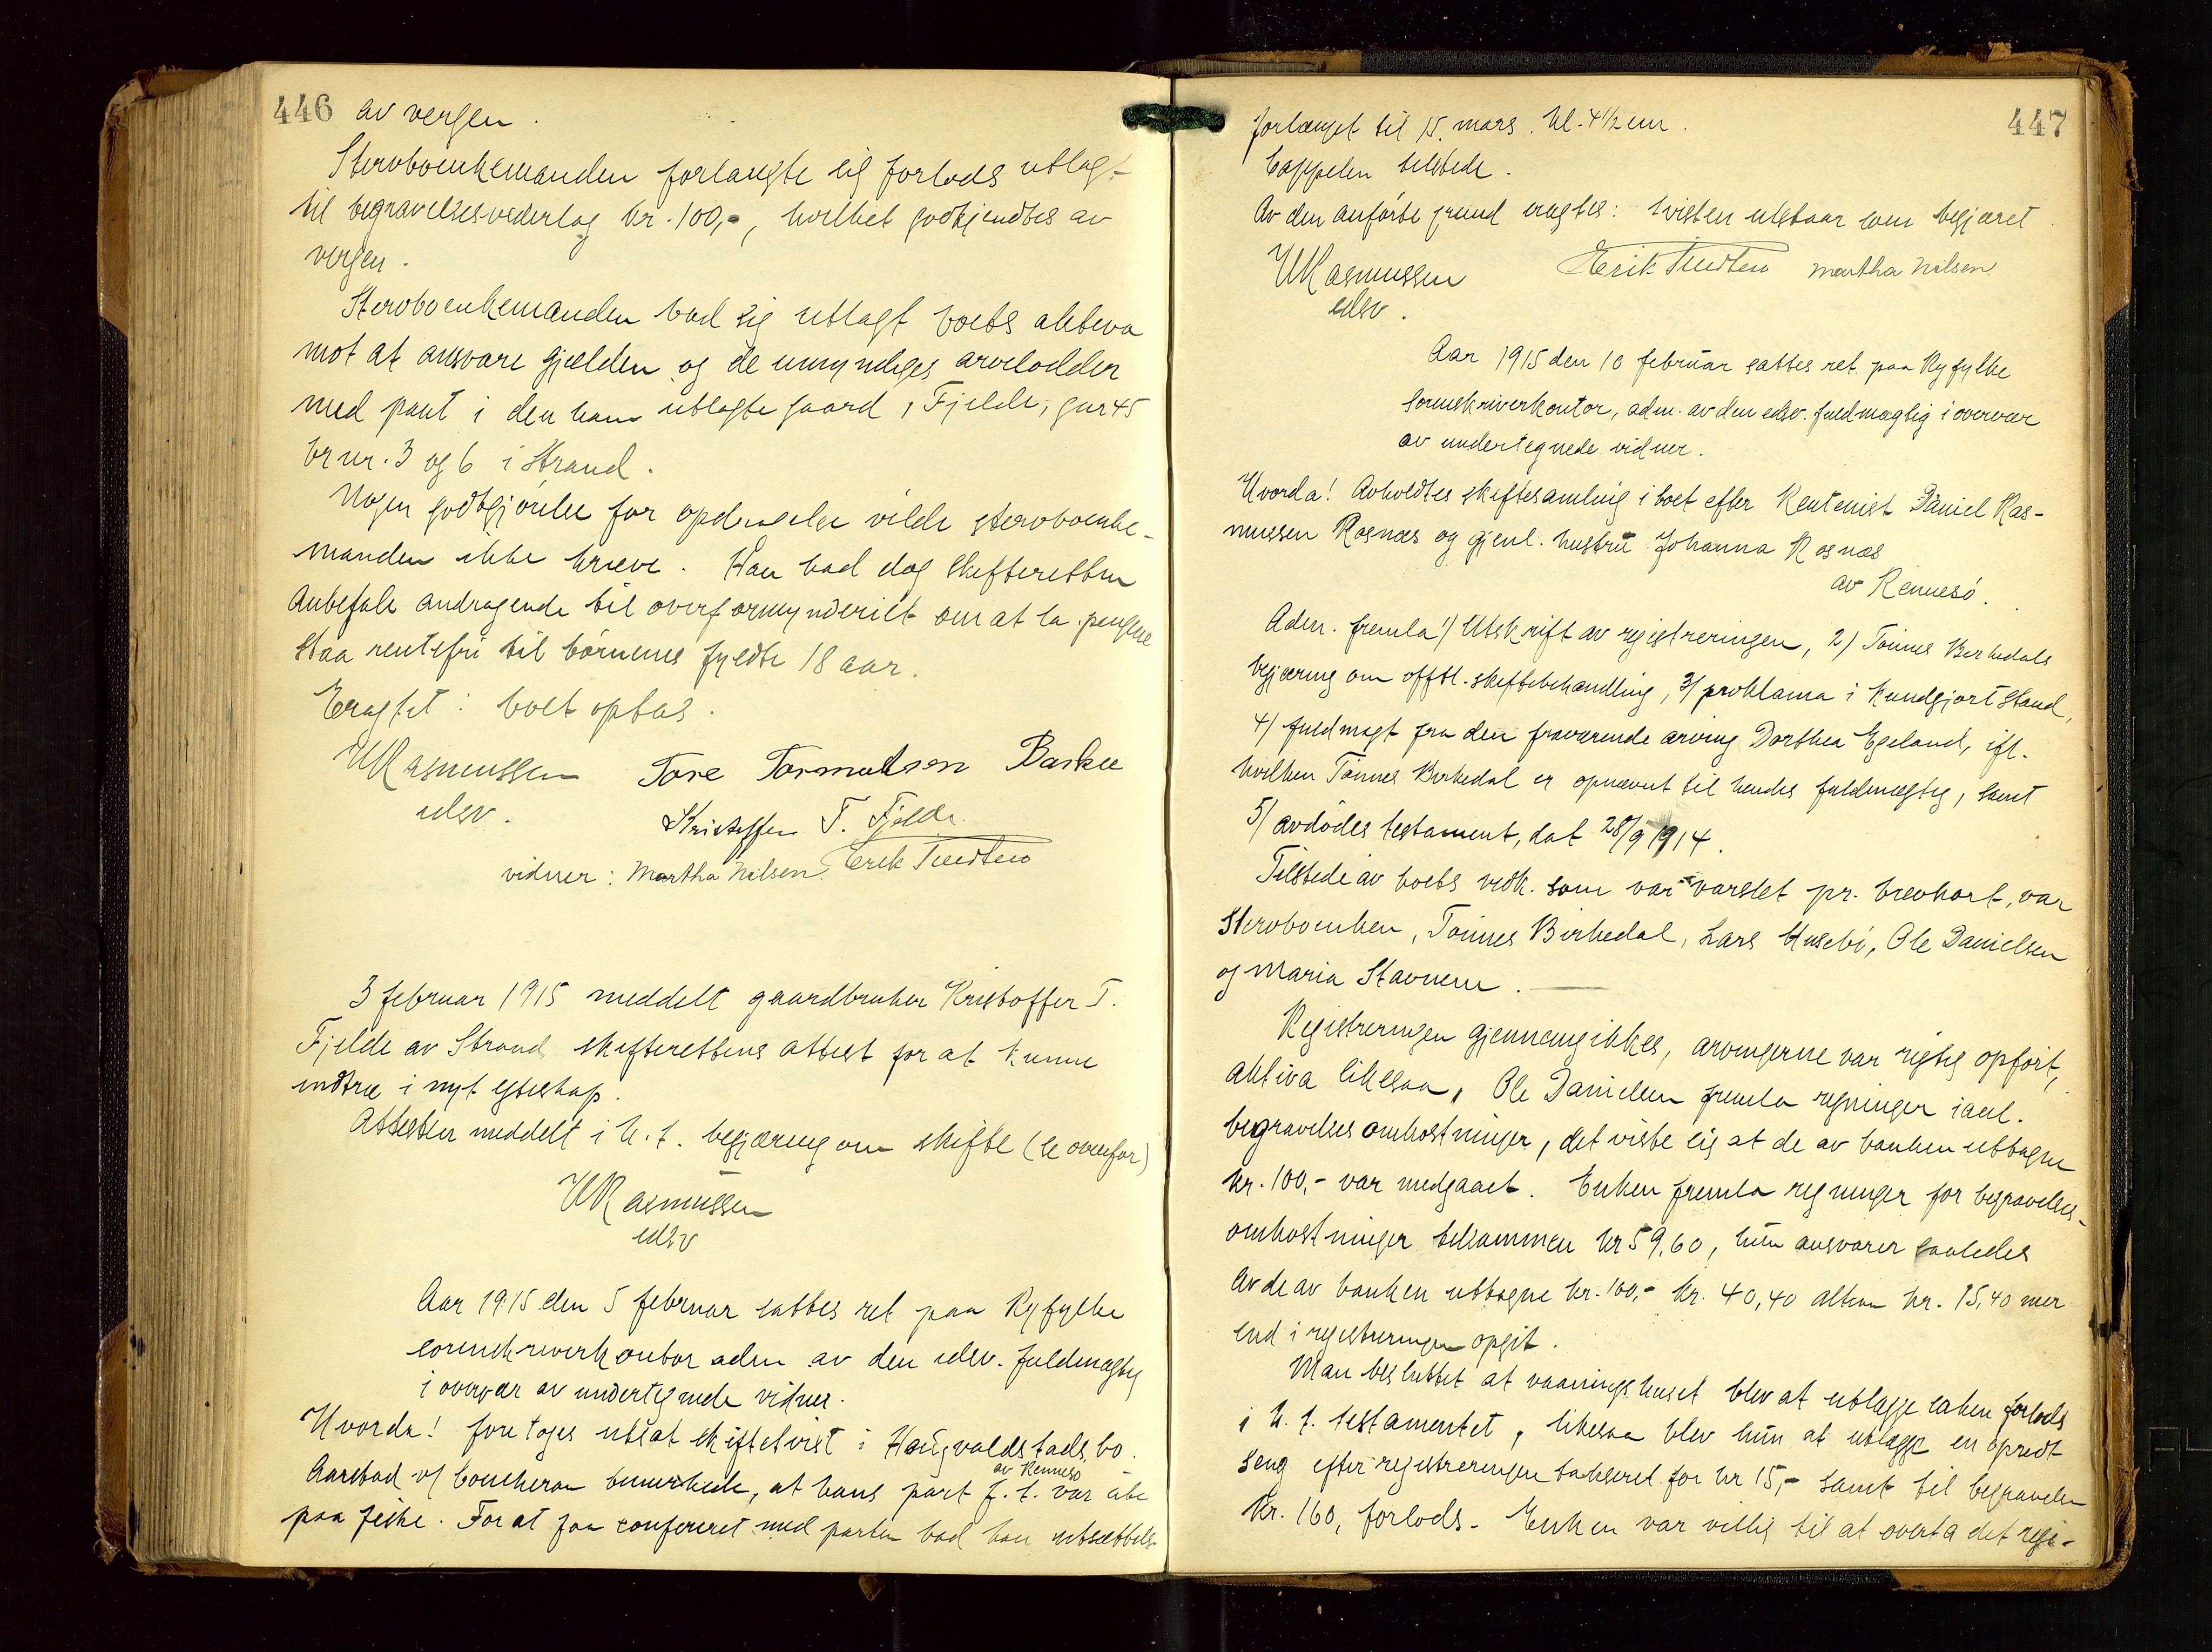 446 av vergen.
Stervboenkemanden forlangte sig forlods utlagt
til begravelsesvederlag kr. 100,-, hvilket godkjendtes av
vergen.
Stervboenkemanden bad sig utlagt boets aktiva
mot at ansvare gjælden og de umyndiges arvelodder
med pant i den ham utlagte gaard, Fjelde, gnr 45
br nr. 3 og 6 i Strand.
Nogen godtgjørelse for opdragelse vilde stervboenke-
manden ikke kræve. Han bad dog skifteretten
anbefale andragende til overformynderiet om at la pengene
staa rentefri til børnenes fyldte 18 aar.
Eragtet: boet optas.
W Rasmussen Tore Tormodsen Barkee
edsv. Kristoffer T. Fjelde
vidner: Martha Nilsen, Erik Tuedten
3 februar 1915 meddelt gaardbruker Kristoffer T.
Fjelde av Strand skifterettens attest for at kunne
indtræ i nyt egteskap.
Attesten meddelt i h. t. begjæring om skifte (se ovenfor)
W Rasmussen
edsv
Aar 1915 den 5 februar sattes ret paa Ryfylke
sorenskriverkontor adm av den edsv. fuldmægtig
i overvær av undertegnede vidner.
Hvorda! foretoges utsat skiftetvist i Haugvaldstads bo.
av Rennesø
Aarstad v/ Coucheron bemerkede, at hans part f. t. var ute
paa fiske. For at faa confereret med parten bad han utsættels-
447
forlænget til 15. mars. kl. 4½ em.
Cappelen tilstede.
Av den anførte grund eragtes: tvisten utstaar som begjæret
W Rasmussen Erik Tuedten Martha Nilsen
edsv.
Aar 1915 den 10 februar sattes ret paa Ryfylke
sorenskriverkontor, adm. av den edsv. fuldmægtig i overvær
av undertegnede vidner.
Hvorda! Avholdtes skiftesamling i boet efter Rentenist Daniel Ras-
mussen Rosnæs og gjenl. hustru Johanna Rosnæs
av Rennesø.
Adm. fremla 1/ Utskrift av registreringen, 2/ Tønnes Birkedals
begjæring om offtl. skiftebehandling, 3/ proklama i kundgjort stand,
4/ fuldmagt fra den fraværende arving Dorthea Egeland, ifl.
hvilken Tønnes Birkedal er opnævnt til hendes fuldmægtig, samt
5/ avdødes testament, dat 28/9 1914.
Tilstede av boets vedk. som var varslet pr. brevkort, var
Stervboenken, Tønnes Birkedal, Lars Husebø, Ole Danielsen
og Maria Stavnem.
Registreringen gjennemgikkes, arvingerne var rigtig opført,
aktiva likesaa, Ole Danielsen fremla regninger iaal.
begravelsesomkostninger, det viste sig at de av banken uttagne
kr. 100,- var medgaaet. Enken fremla regninger for begravelses-
omkostninger tilsammen kr 59,60, hun ansvarer saaledes
av de av banken uttagne kr. 100,- kr. 40,40 altsaa kr. 15,40 mer
end i registreringen opgit.
Man besluttet at vaaningshuset blev at utlægge enken forlods
i h. t. testamentet, likesaa blev hun at utlægge en opredt
seng efter registreringen takseret for kr 15,- samt til begravelse
kr. 160, forlods. Enken var villig til at overta det regi-